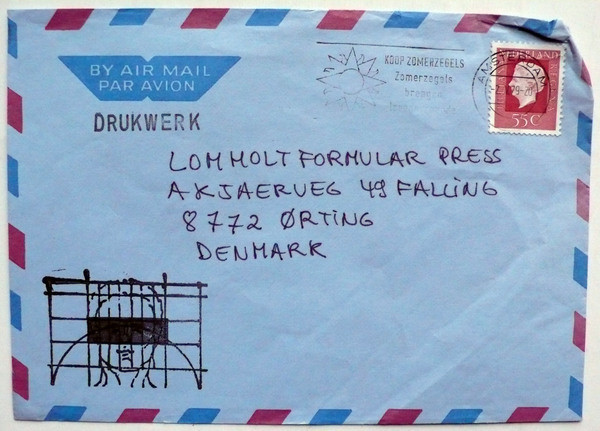 BY AIR MAIL
PAR AVION
DRUKWERK
KOOP ZOMERZEGELS
Zomerzegels
brengen
NEDERLAND
AMSTERDAM
55c
LOMHOLT FORMULAR PRESS
AKJAERVEG 49 FALLING
8772 ØRTING
DENMARK